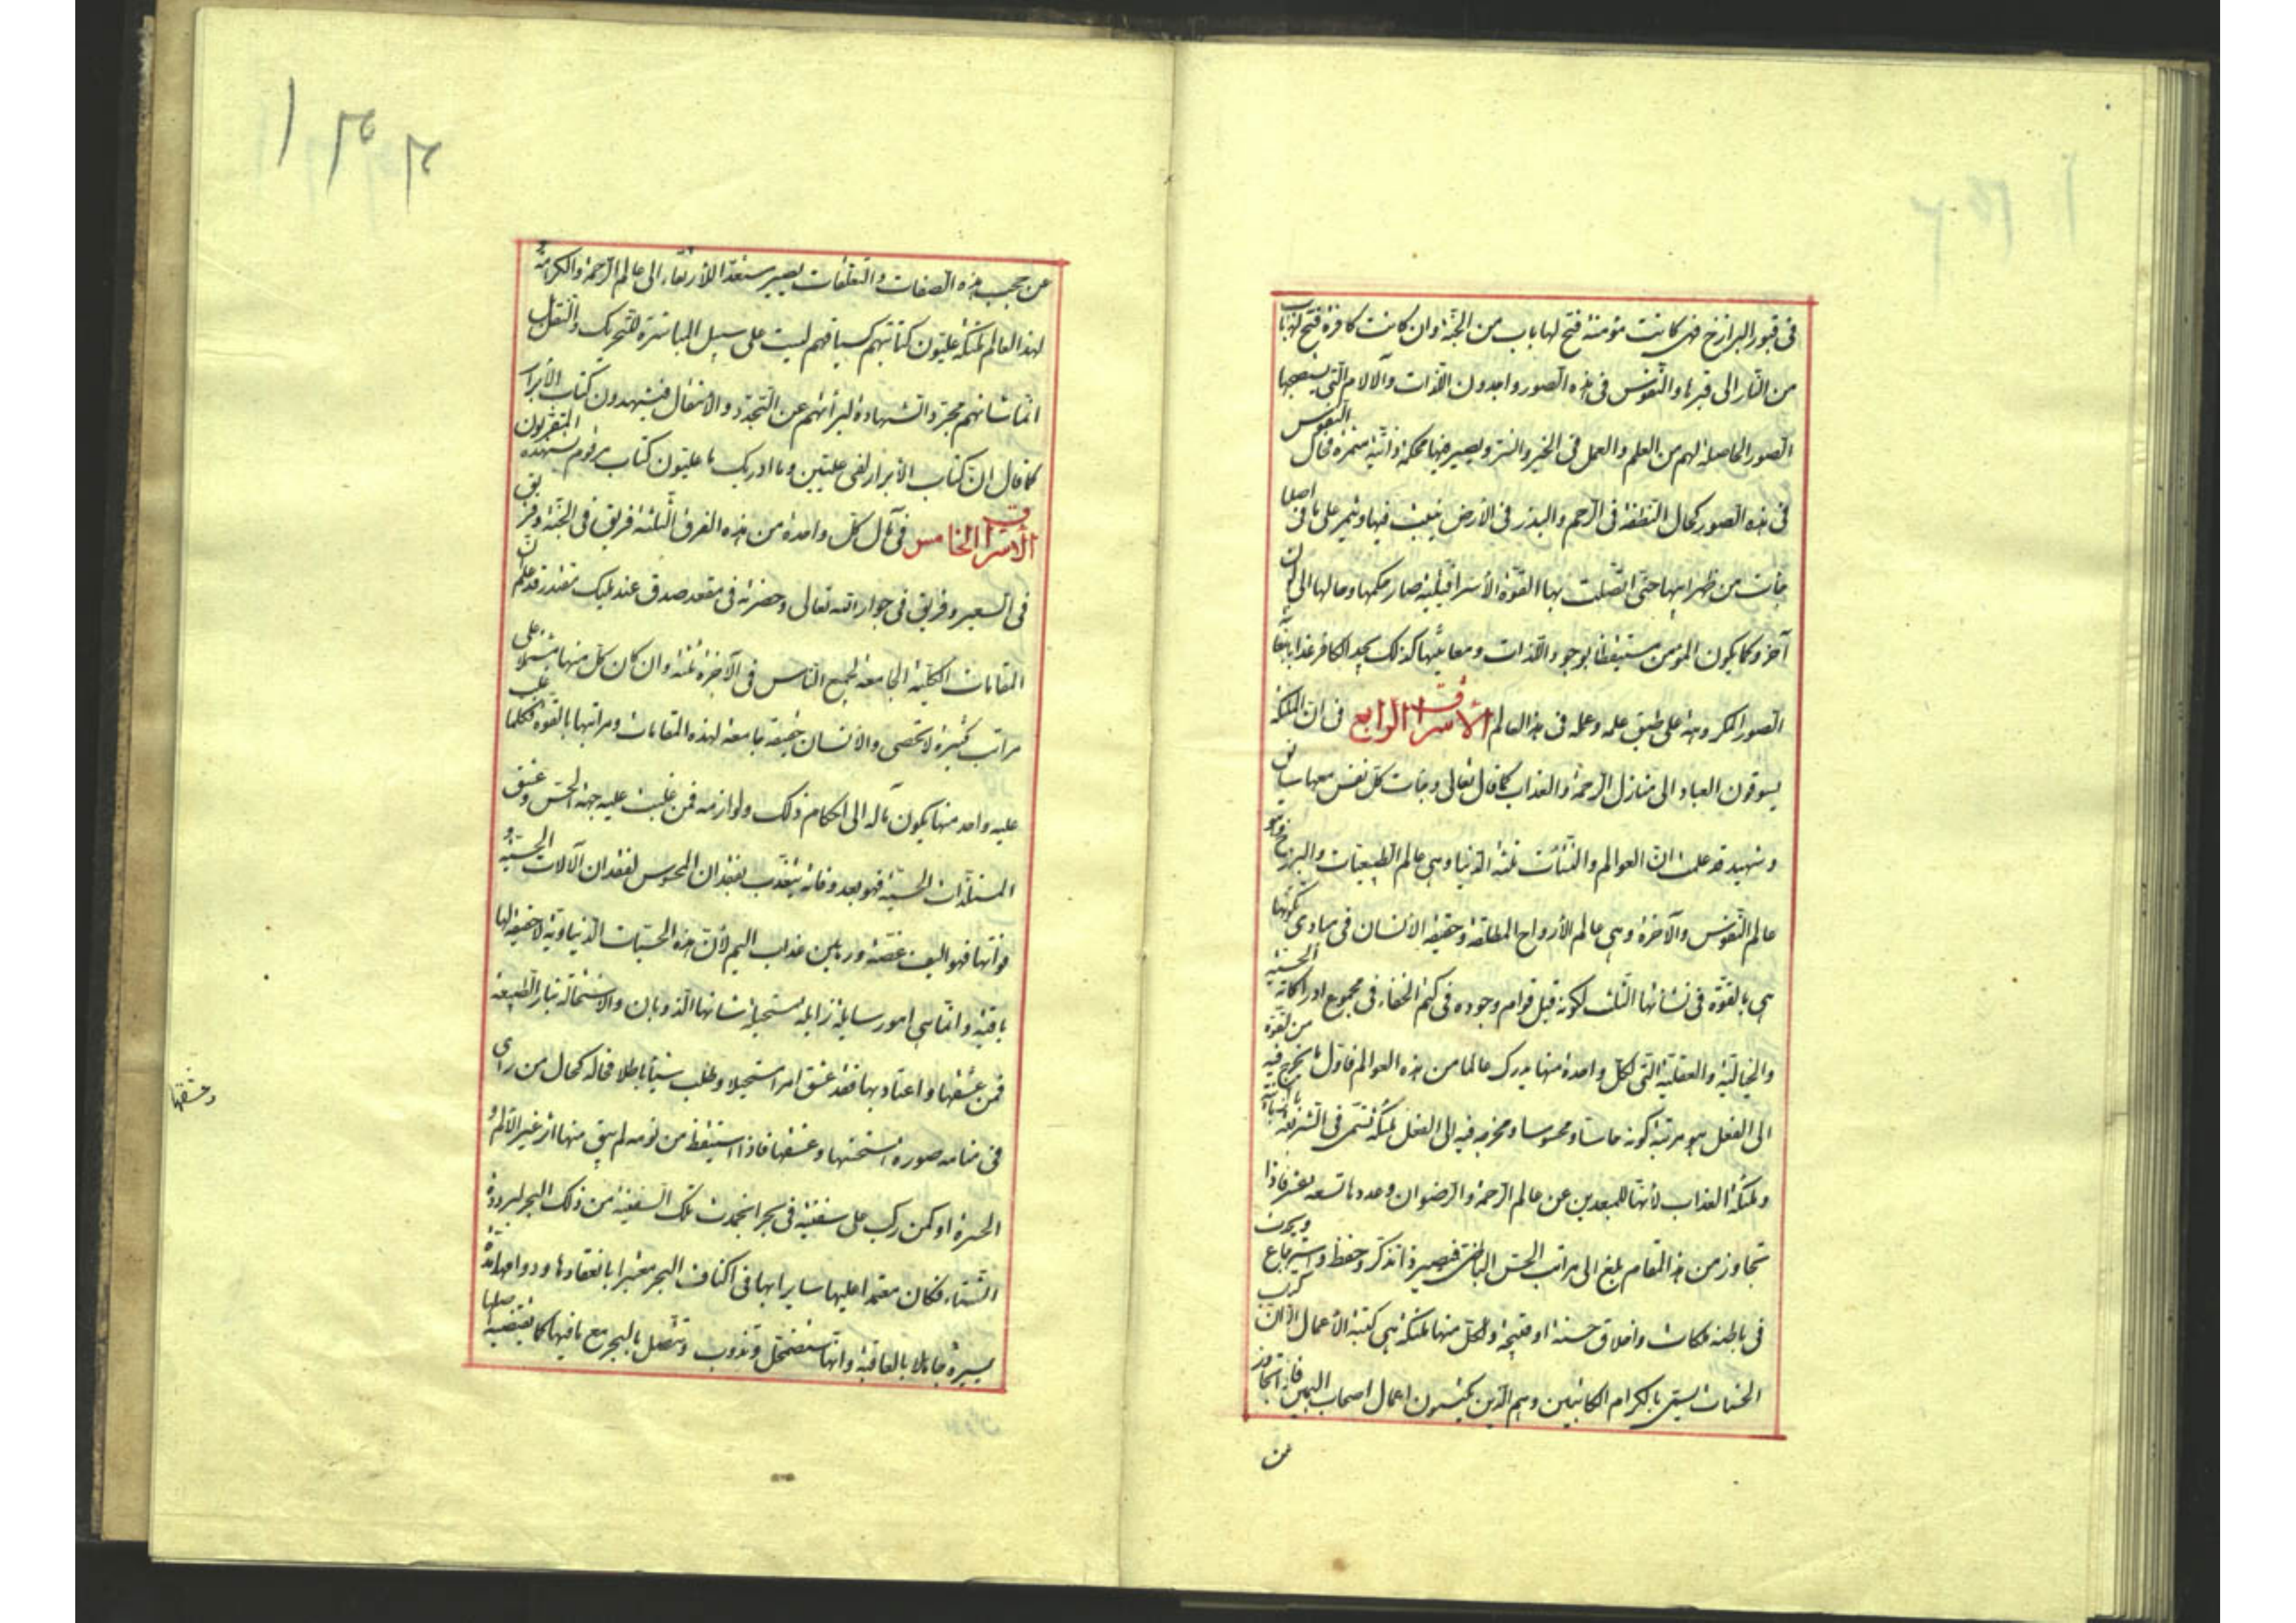 فى قبور البرازخ فهى كانت مؤمنة فتح لها باب من الجنة وان كانت كافرة فتح لها باب
من النار الى قبرها والنفوس فى هذه الصور واجدون اللذات والآلام التى يستصحبها
الصور الحاصلة لهم من العلم والعمل فى الخير والشر ويصير فيها محكمة ذاتية مثمرة فحال النفوس
فى هذه الصور كحال النطفة فى الرحم والبذر فى الارض ينبت فيها ويثمر على ما فى اصلها
من ظهر ابيها حتى اتصلت بها القوة الاسرافيلية صار حكمها وحالها الى لون
آخر وكما يكون المؤمن مستيقظا بوجود اللذات ومعاينتها كذلك يجد الكافر عذابا
الصور المكروهة على طبق علمه وعمله فى هذا العالم الأشراق الرابع فى ان الملئكة
يسوقون العباد الى منازل الرحمة والعذاب كما قال تعالى وجاءت كل نفس معها سائق
وشهيد قد علمت ان العوالم والنشآت ثلثة الدنيا وهى عالم الطبيعيات والبرزخ وهو
عالم النفوس والآخرة وهى عالم الأرواح المطلقة وحقيقة الانسان فى مبادى تكونها
هى بالقوة فى نشأتها الثلث لكونه قبل قوام وجوده فى كتم الخفاء فى مجموع ادراكاته الحسية
والخيالية والعقلية التى لكل واحدة منها يدرك عالما من هذه العوالم فاول ما يخرج فيه من القوة
الى الفعل هو مرتبة كونه حاسا ومحسوسا ومخرجه فيه الى الفعل ملئكة تسمى فى الشريعة
وملئكة العذاب لأنها للمبعدين عن عالم الرحمة والرضوان وعددها تسعة عشر فاذا
تجاوز من هذا المقام بلغ الى مراتب الحس الباطنى فيصير ذا تذكر وحفظ واسترجاع ويكون
فى باطنه ملكات واخلاق حسنة او قبيحة ولكل منها ملئكة هى كتبة الأعمال الا ان كتاب
الحسنات يسمى بالكرام الكاتبين وهم الذين يكتبون اعمال اصحاب اليمين فاذا تجاوز
عن
عن حجب هذه الصفات والتعلقات يصير مستعدا للأرتقاء الى عالم الرحمة والكرامة و
لهذا العالم ملئكة عليون كتابتهم كسياقهم ليست على سبيل المباشرة للتحريك والنقل بل
انما شانهم مجرد الشهادة لبرائتهم عن التجدد والانتقال فيشهدون كتاب الأبرار
كما قال ان كتاب الابرار لفى عليين وما ادريك ما عليون كتاب مرقوم يشهده المقربون
الأشراق الخامس فى مآل كل واحدة من هذه الفرق الثلثة فريق فى الجنة وفريق
فى السعير وفريق فى جوار الله تعالى وحضرته فى مقعد صدق عند مليك مقتدر قد علم ان
المقامات الكلية الجامعة لجميع الناس فى الآخرة ثلثة وان كان كل منها مشتملا على
مراتب كثيرة لا تحصى والانسان حقيقة جامعة لهذه المقامات ومراتبها بالقوة فكلما غلب
عليه واحد منها يكون مآله الى احكام ذلك ولوازمه فمن غلبت عليه جهة الحس وعشق
المستلذات الحسية فهو بعد وفاته يتعذب بفقدان المحسوس لفقدان الآلات الحسية و
فواتها فهو اليف غصة ورهين عذاب اليم لأن هذه الحسيات الدنياوية لا حقيقة لها
باقية وانما هى امور سايلة زايلة مستحيلة شانها الذوبان والاستحالة بنار الطبيعة
فمن عشقها واعتاد بها فقد عشق امرا مستحيلا وطلب شيئا باطلا فحاله كحال من راى
فى منامه صورة استحسنها وعشقها فاذا استيقظ من نومه لم يبق منها اثر غير الألم و
الحسرة او كمن ركب على سفينة فى بحر انجمدت تلك السفينة من ذلك البحر لبرودة
الشتاء فكان معتمدا عليها سايرا بها فى اكناف البحر مغترا بانعقادها ودوامها مدة
يسيرة جاهلا بالعاقبة وانها ستضمحل وتذوب وتتصل بالبحر مع ما فيها كما يقتضيه اصلها
وعشقها